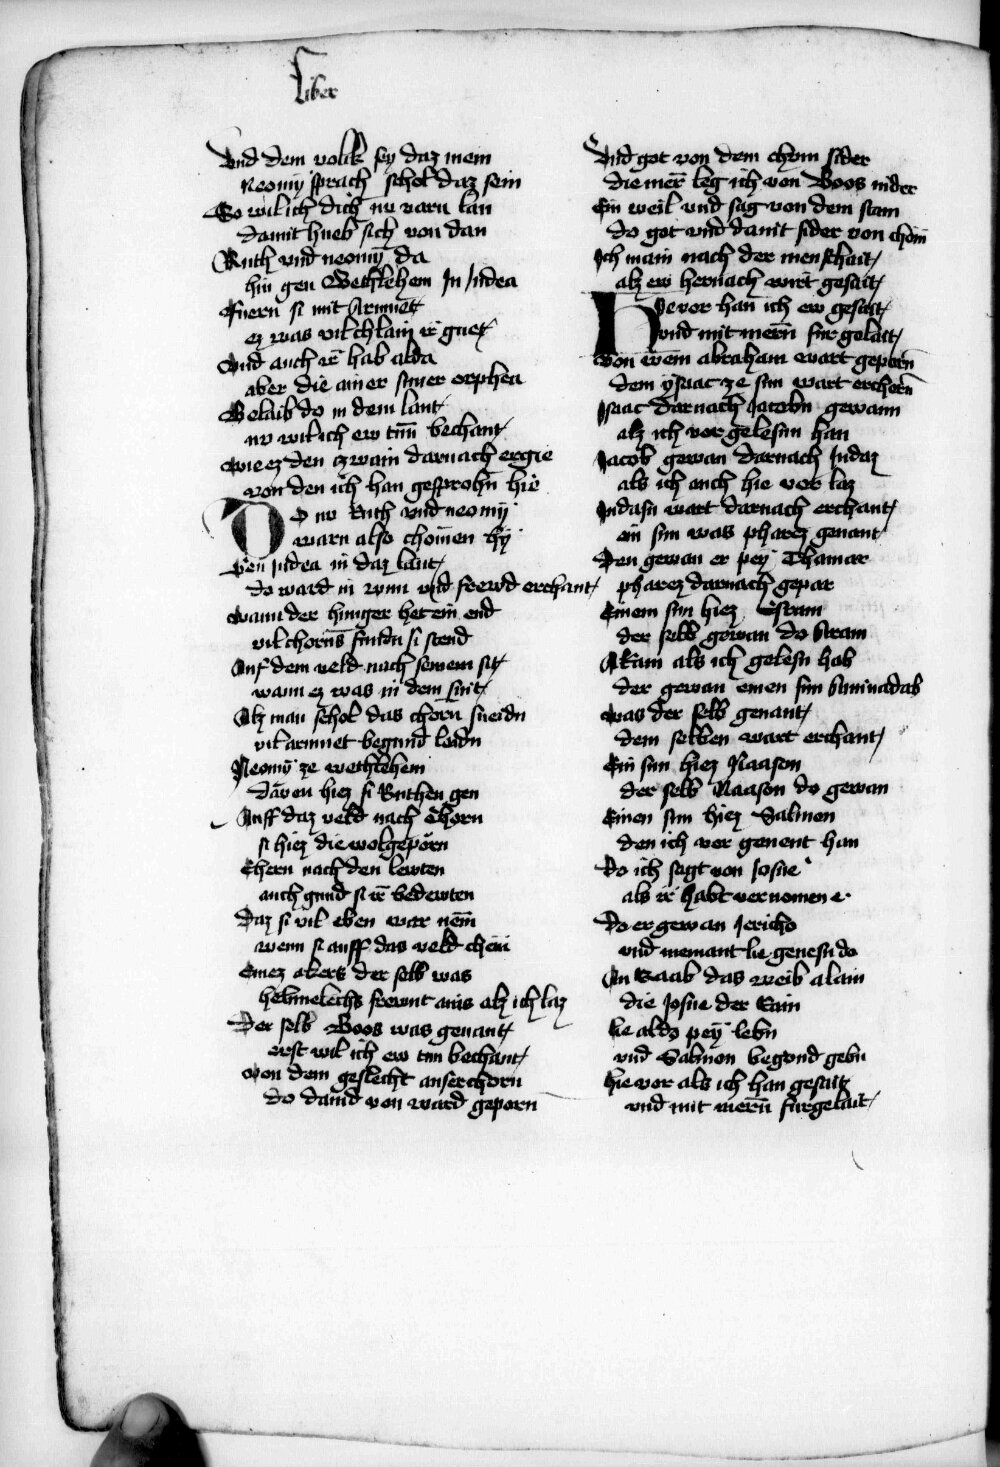 Liber
Vnd dem volkk sey daz mein
Neomy sprach schol daz sein
So wil ich dich nu varn lan
damit hueb sich von dan
Ruth vnd neomy da
hin gen Bethlehem In Judea
Fuern si mit Armuet
ez was vil chlain ir guet
Vnd auch ir hab alda
aber die ainer snuer orphea
Belaib do in dem lant
nu wil ich ew tun bechant
wie ez den zwain darnach ergie
von den ich han gesprochn hie
Do nu Ruth vnd neomy
warn also chomen hy
gen Judea in daz lant
do ward in wnn vnd frewd erchant
wann der hunger het ein end
vil chorns fundn si stend
Auf dem veld nach seinem sit
wann ez was in dem snit
Alz man schol das chorn sneidn
vil armuet begund leidn
Neomy ze wethlehem
dauon hiez si Ruthen gen
Auff daz veld nach chorn
si hiez die wolgeporn
Ehern nach den lewten
auch gund si ir bedewten
Daz si vil eben war nem
wenn si auff das veld chem
Einez akers der selb was
helimelechs frewnt anis alz ich laz
Der selb Boos was genant
erst wil ich ew tun bechant
von dem geslecht auserchorn
do dauid von ward geporn
Vnd got von dem chom sider
die mer leg ich von Boos nider
Ein weil vnd sag von dem stam
do got vnd dauit sider von chom
Ich main nach der menschait
alz ew hernach wirt gesait
Hie vor han ich ew gesait
vnd mit mern fur gelait
von wem abraham wart geporn
dem ysaac ze sun wart erchorn
Isaac darnach Jacobn gewann
alz ich vor gelesnn han
Jacob gewan darnach Judaz
als ich auch hie vor laz
Judasn wart darnach erchant
ein sun was pharez genant
Den gewan er pey Thamar
pharez darnach gepar
Einem sun hiez Esram
der selb gewan do Aram
Aram als ich gelesn hab
der gewan einen sun Aminadab
was der selb genant
dem selben wart erchant
Ein sun hiez Naason
der selb Naason do gewan
Einen sun hiez Salmon
den ich vor genent han
Do ich sagt von Josue
als ir habt vernomen e
Do er gewan Jericho
vnd niemant lie genesn do
An Raab das weib alain
die Josue der Rain
lie aldo pey lebn
vnd Salmon begond gebn
hie vor als ich han gesait
vnd mit mern furgelait